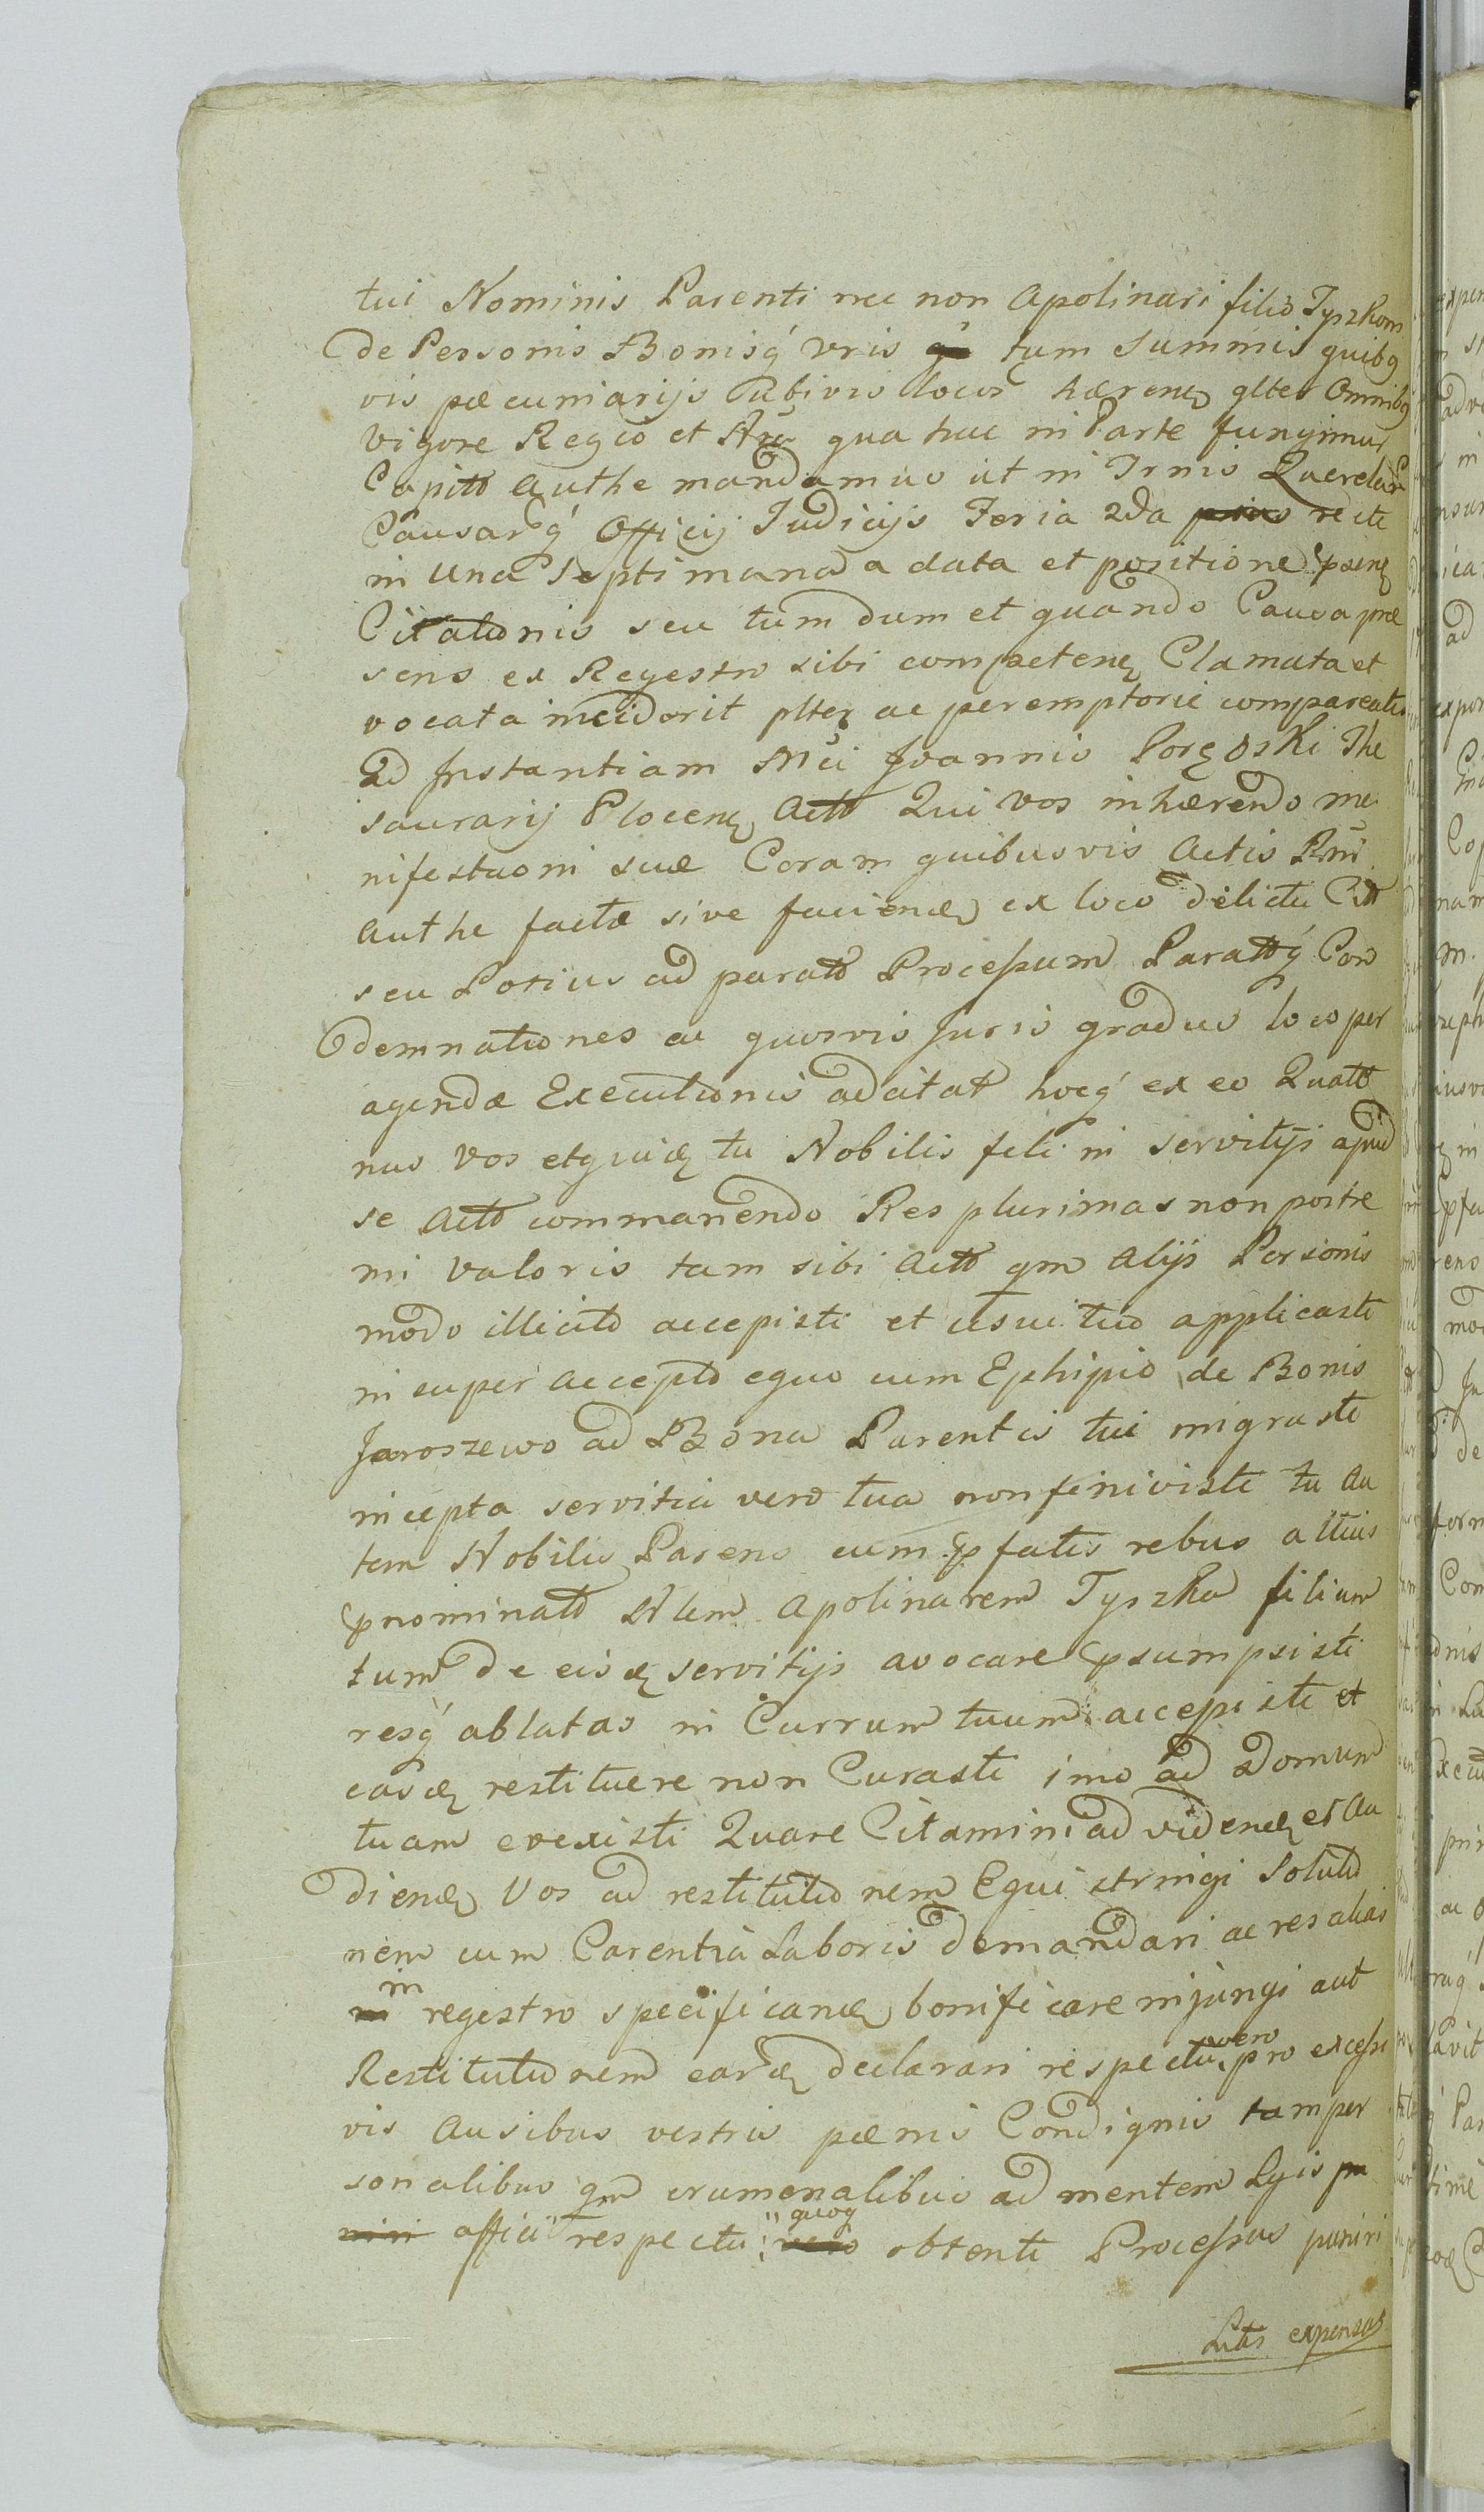 tui Nominis Parenti nec non Apolinari filio Tyszkom
de Personis Bonisq́ vris tum Summis quibq
vis pæcuniarijs ubivis locor hæreng glter Omnibq
Vigore Regio et qua hac in Parte fungimur
Capitt Authe mandamus ut in Trnis Querelar
Causarq́ Officij Judicijs Feria 2da recte
in una Septimana a data et positione pseng
Citationis seu tum dum et quando Causa præ
sens ex Regestro sibi competeng Clamata et
vocata inciderit plter ac peremptorie compareatis
Ad Instantiam Mci Joannis Porzoski The
saurarij Ploceng Actt Qui vos inhærendo ma
nifestaoni suæ Coram quibusvis Actis Rmi
Authe factæ sive faciendæ ex loco delicti Citt
seu Potius ad paratt Processum Parattq́ Con
demnationes ac quosvis Juris gradus loco per
agendæ Executionis adcitat hocq́ ex eo Quatt
nus Vos etquidę tu Nobilis fili in servitijs apud
se Actt commanendo Res plurimas non postre
mi Valoris tam sibi Actt qm Alijs Personis
modo illicito accepisti et usui tuo applicasti
in super accepto equo cum Ephipio de Bonis
Jaroszewo ad Bona Parentis tui migrasti
incepta servitia vero tua non finivisti tu Au
tem Nobilis Parens cum pfatis rebus
pnominatt Nlem Apolinarem Tyszka filium
tum de eisdę servitijs avocare psumpsisti
resq́ ablatas in Currum tuum accepisti et
easdę restituere non Curasti imo ad Domum
tuam evexisti Quare Citamini ad videndę et Au
diendę Vos ad restitutionem Equi stringi Solutio
nem cum Carentia Laboris demandari ac res alias
in regestro specificandę bonificare injungi aut
Restitutionem eardę declarari respectu vero pro excessi
vis Ausibus vestris pænis Condignis tam per
sonalibus qm crumenalibus ad mentem Lgis
affici respectu quoq obtenti Processus puniri
Litis expensas